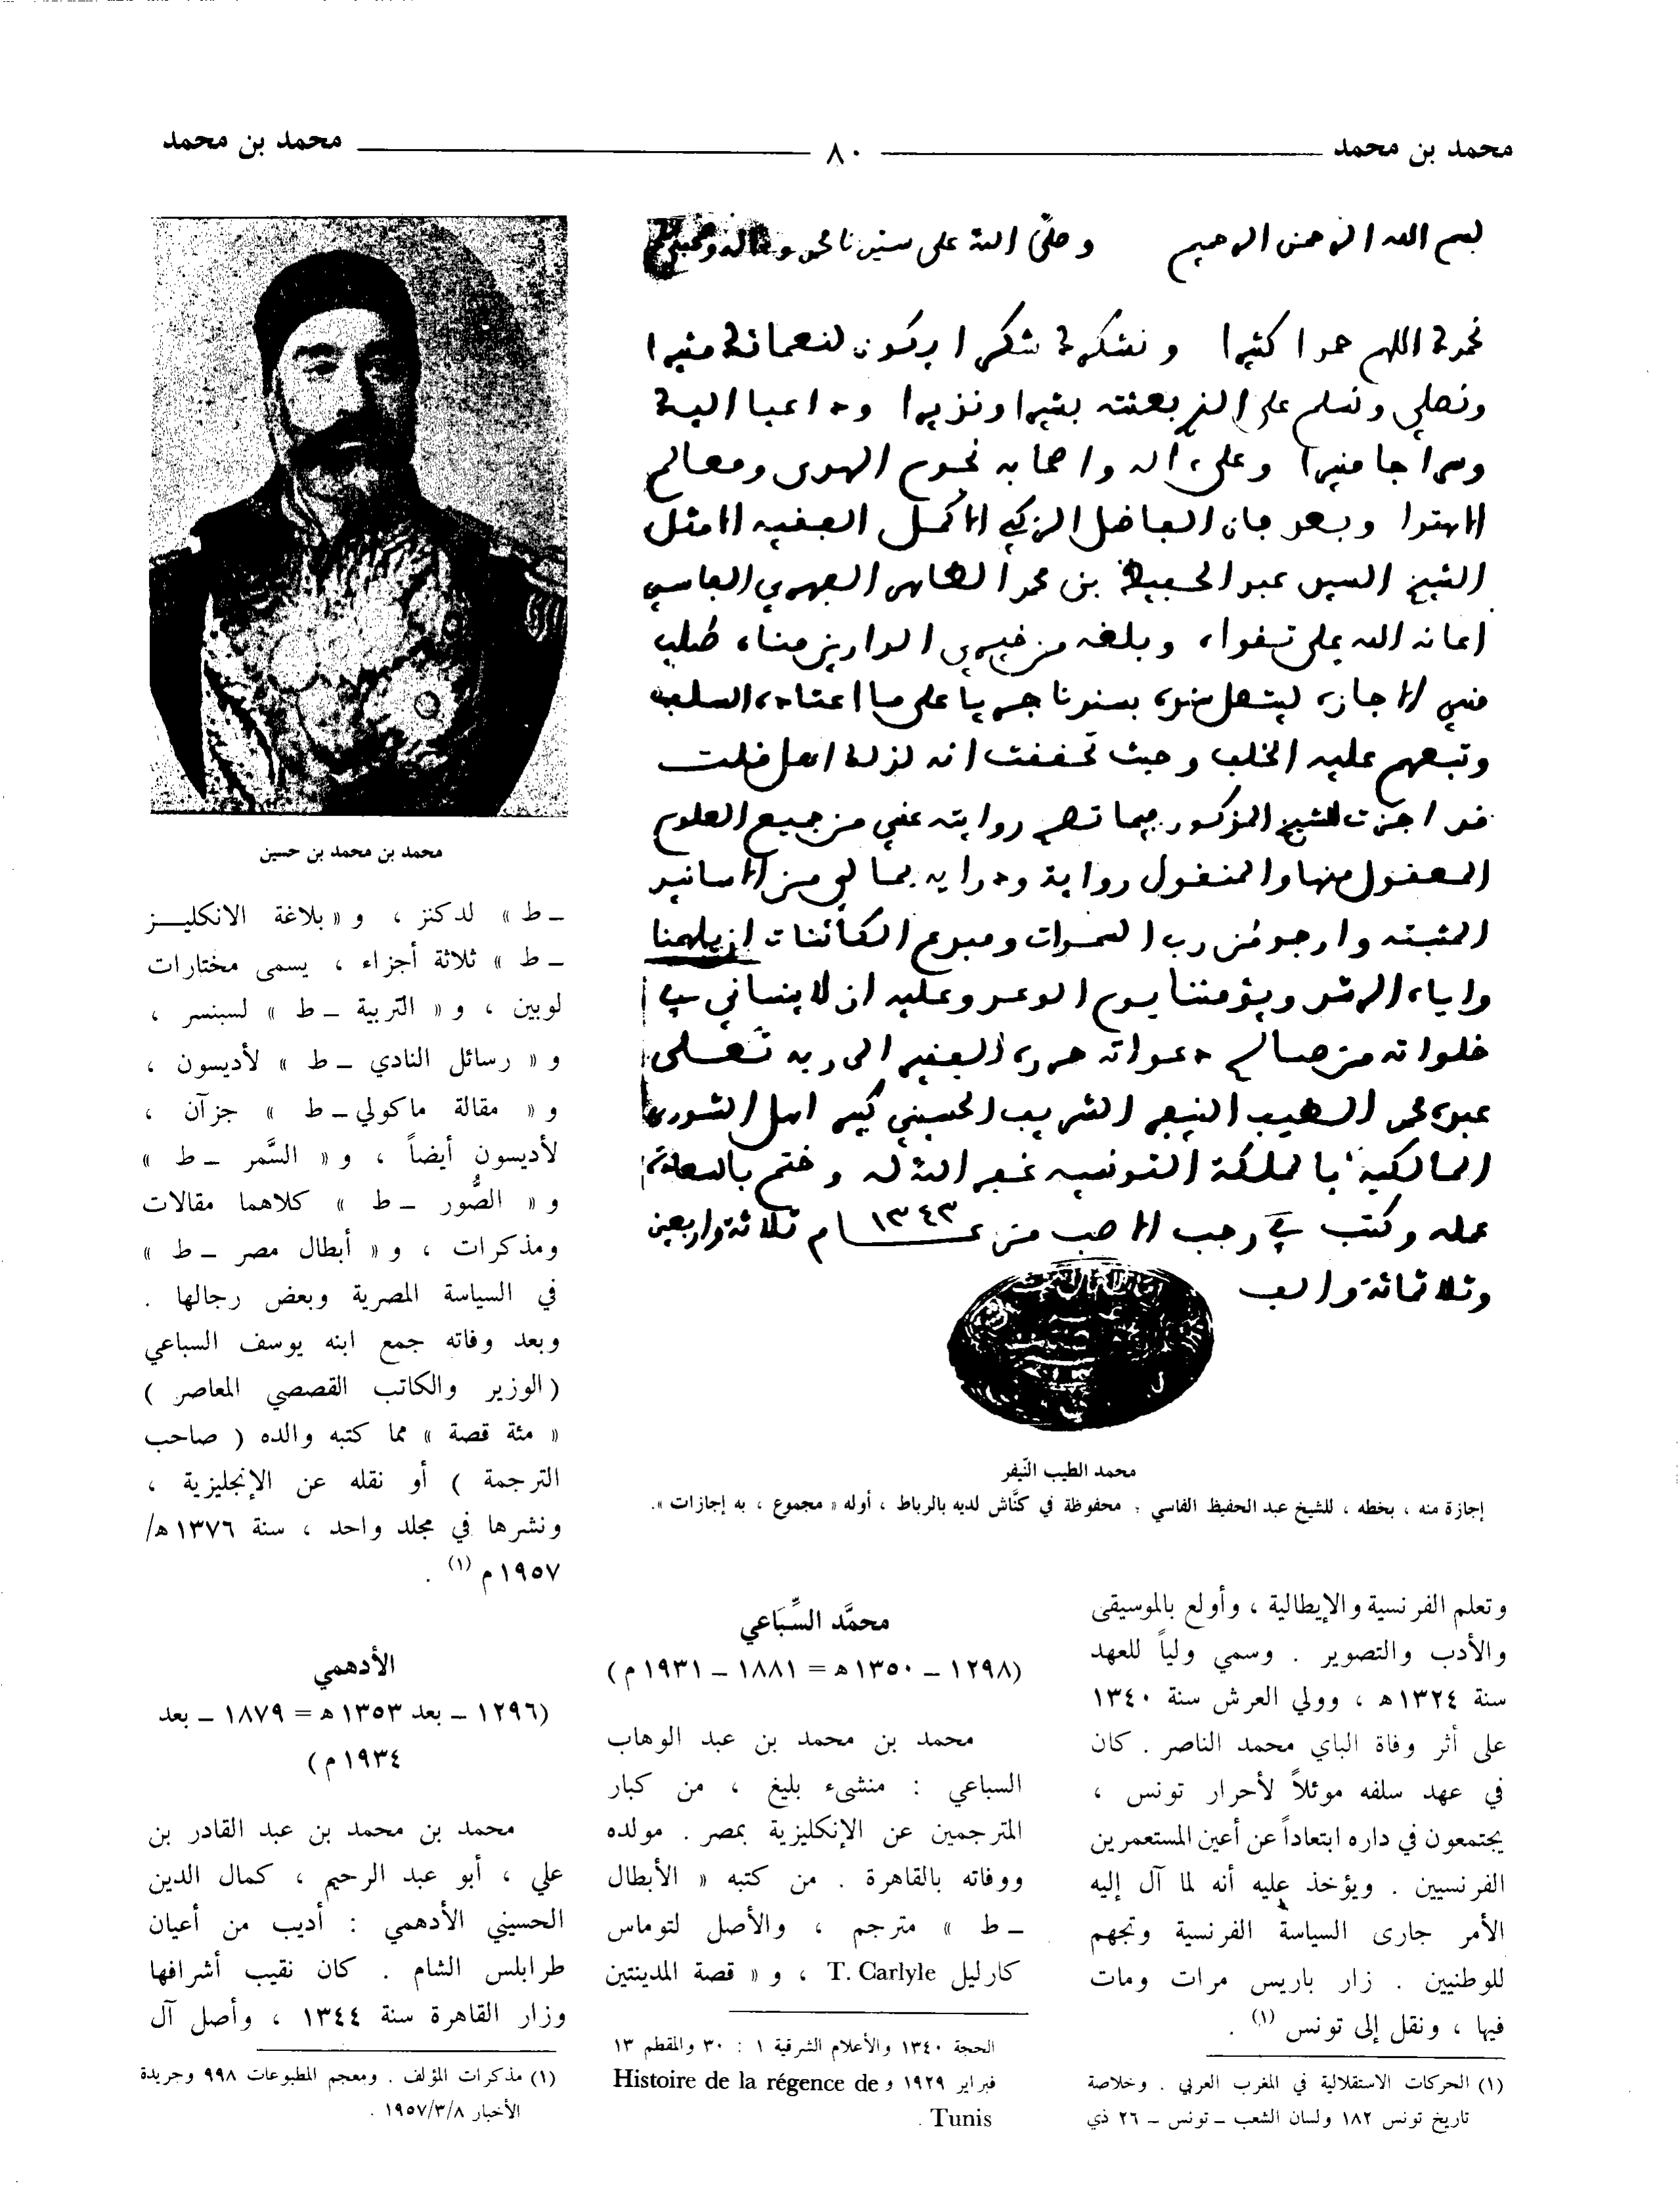 محمد بن محمد ٨٠ محمد بن محمد
بسم الله الرحمن الرحيم وصلى الله على سيدنا محمد وآله وصحبه
نحمدك اللهم حمدا كثيرا ونشكرك شكرا يكون لنعمائك مثيرا
ونصلي ونسلم على الذي بعثته بشيرا ونذيرا وداعيا اليك
وسراجا منيرا وعلى اله واصحابه نجوم الهدى ومعالم
الاهتدا وبعد فان الفاضل الزكي الاكمل الفقيه الامثل
الشيخ السيد عبد الحفيظ بن محمد الطاهر الفهري الفاسي
اعانه الله على تقواه وبلغه من خيري الدارين مناه طلب
مني الاجازة ليتصل سنده بسندنا جريا على ما اعتاده السلف
وتبعهم عليه الخلف وحيث تحققت انه لذلك اهل قلت
قد اجزت للشيخ المذكور فيما تصح روايته عني من جميع العلوم
المعقول منها والمنقول رواية ودراية بما لي من الاسانيد
المثبتة وارجو من رب السموات ومبدع الكائنات ان يلهمنا
واياه الرشد ويؤمننا يوم الوعد وعليه ان لا ينساني في
خلواته من صالح دعواته حرره الفقير الى ربه تعلى
عبده محمد الطيب النيفر الشريف الحسيني كبير اهل الشورى
المالكية بالمملكة التونسية غفر الله له وختم بالسعادة
عمله وكتب في رجب الاصب من عام ١٣٤٣ ثلاثة واربعين
وثلاثمائة والف
محمد الطيب النّيفر
إجازة منه ، بخطه ، للشيخ عبد الحفيظ الفاسي : محفوظة في كنَّاش لديه بالرباط ، أوله « مجموع ، به إجازات ».
وتعلم الفرنسية والإيطالية ، وأولع بالموسيقى
والأدب والتصوير . وسمي ولياً للعهد
سنة ١٣٢٤ هـ ، وولي العرش سنة ١٣٤٠
على أثر وفاة الباي محمد الناصر . كان
في عهد سلفه موئلاً لأحرار تونس ،
يجتمعون في داره ابتعاداً عن أعين المستعمرين
الفرنسيين . ويؤخذ عليه أنه لما آل إليه
الأمر جارى السياسة الفرنسية وتجهم
للوطنيين . زار باريس مرات ومات
فيها ، ونقل إلى تونس (١) .
(١) الحركات الاستقلالية في المغرب العربي . وخلاصة
تاريخ تونس ١٨٢ ولسان الشعب ــ تونس ــ ٢٦ ذي
محمَّد السِّبَاعي
(١٢٩٨ ــ ١٣٥٠ هـ = ١٨٨١ ــ ١٩٣١ م)
محمد بن محمد بن عبد الوهاب
السباعي : منشىء بليغ ، من كبار
المترجمين عن الإنكليزية بمصر . مولده
ووفاته بالقاهرة . من كتبه « الأبطال
ــ ط » مترجم ، والأصل لتوماس
كارليل T. Carlyle ، و « قصة المدينتين
الحجة ١٣٤٠ والأعلام الشرقية ١ : ٣٠ والمقطم ١٣
فبراير ١٩٢٩ و Histoire de la régence de
Tunis .
محمد بن محمد بن حسين
ــ ط » لدكنز ، و « بلاغة الانكليـز
ــ ط » ثلاثة أجزاء ، يسمى مختارات
لوبين ، و « التربية ــ ط » لسبنسر ،
و « رسائل النادي ــ ط » لأديسون ،
و « مقالة ماكولي ــ ط » جزآن ،
لأديسون أيضاً ، و « السَّمر ــ ط »
و « الصُّور ــ ط » كلاهما مقالات
ومذكرات ، و « أبطال مصر ــ ط »
في السياسة المصرية وبعض رجالها .
وبعد وفاته جمع ابنه يوسف السباعي
( الوزير والكاتب القصصي المعاصر )
« مئة قصة » مما كتبه والده ( صاحب
الترجمة ) أو نقله عن الإنجليزية ،
ونشرها في مجلد واحد ، سنة ١٣٧٦ هـ/
١٩٥٧ م (١) .
الأدهمي
(١٢٩٦ ــ بعد ١٣٥٣ هـ = ١٨٧٩ ــ بعد
١٩٣٤ م)
محمد بن محمد بن عبد القادر بن
علي ، أبو عبد الرحيم ، كمال الدين
الحسيني الأدهمي : أديب من أعيان
طرابلس الشام . كان نقيب أشرافها
وزار القاهرة سنة ١٣٤٤ ، وأصل آل
(١) مذكرات المؤلف . ومعجم المطبوعات ٩٩٨ وجريدة
الأخبار ١٩٥٧/٣/٨ .